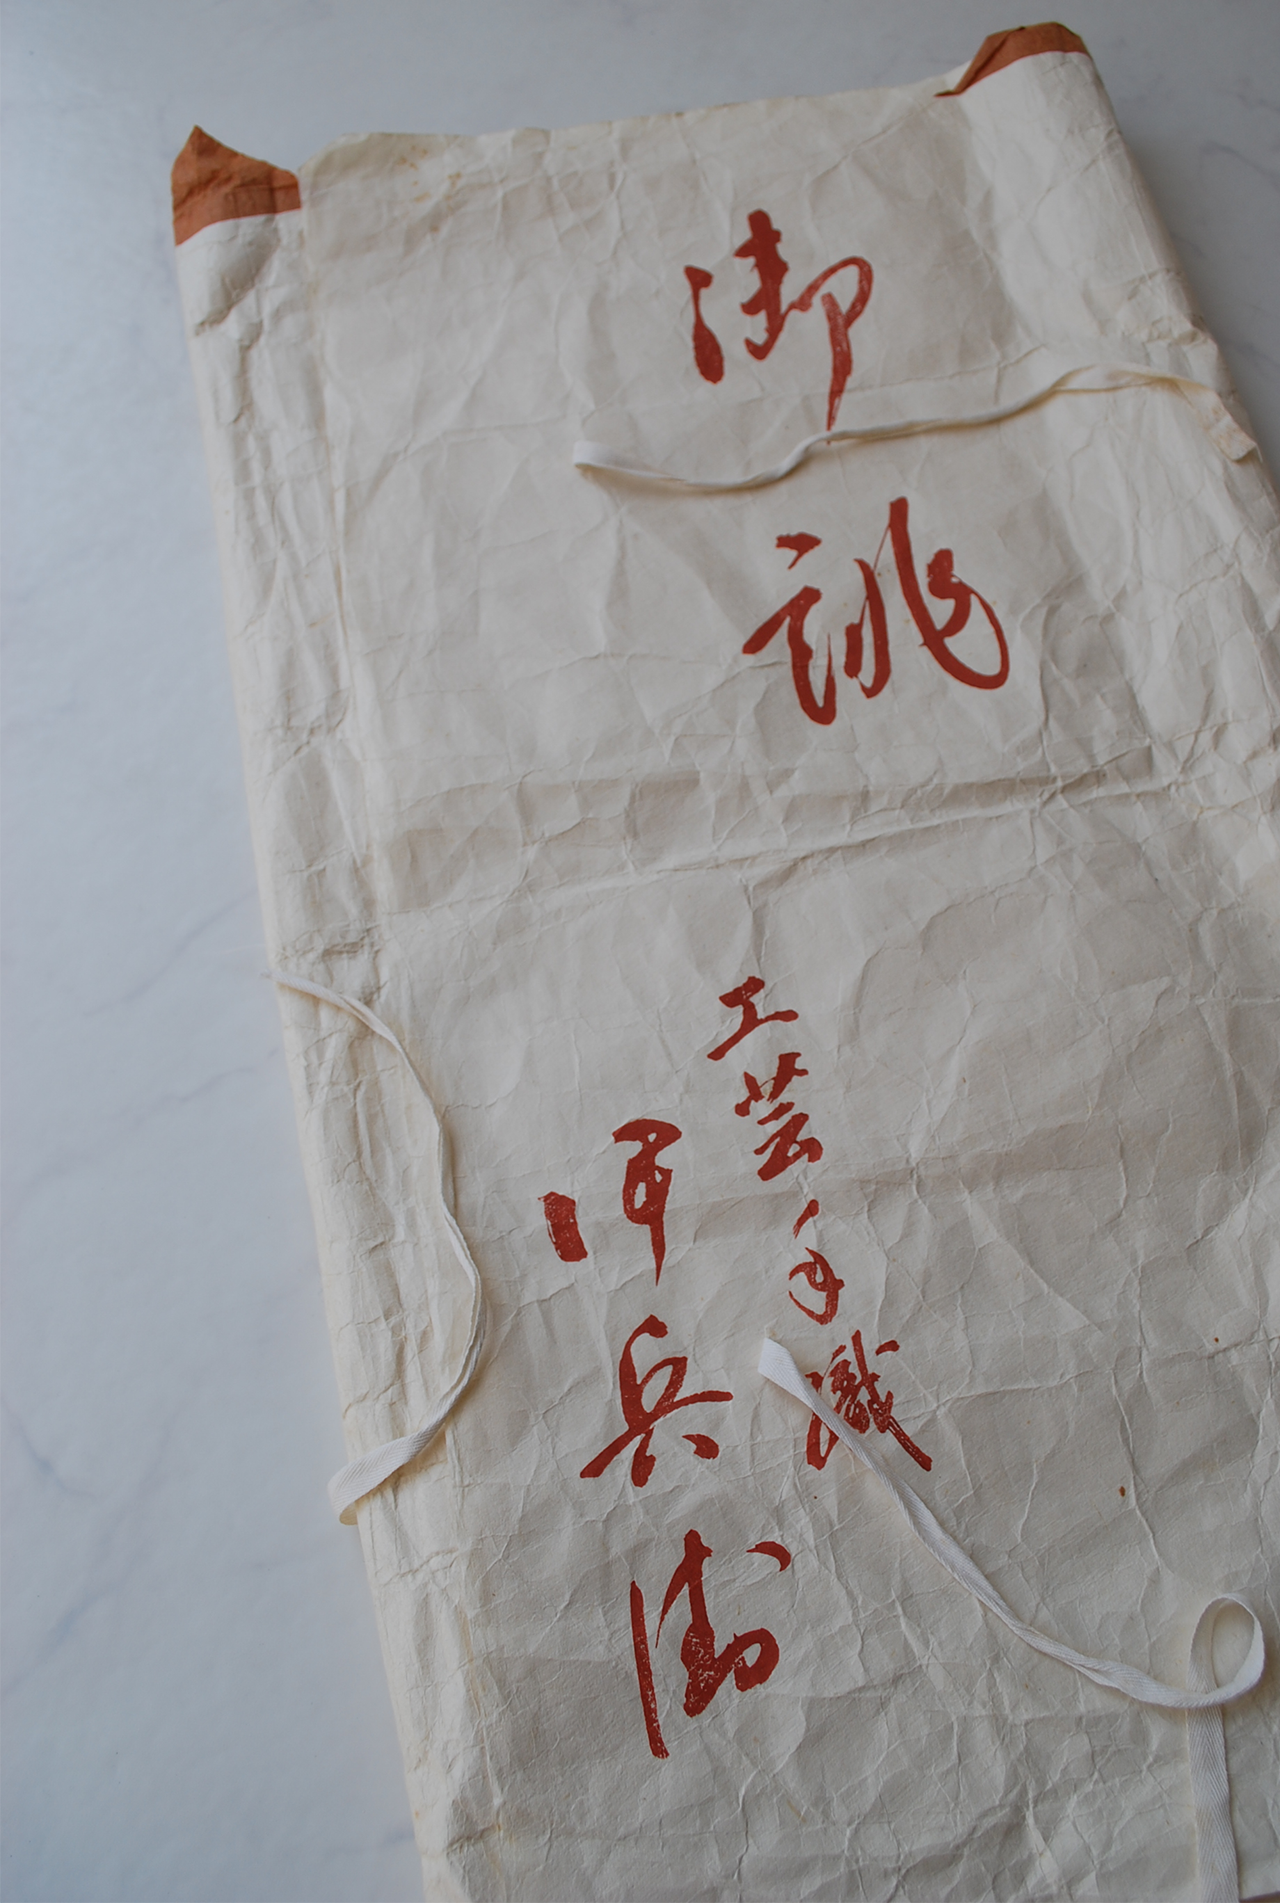 御誂
工芸手織
伊兵衛